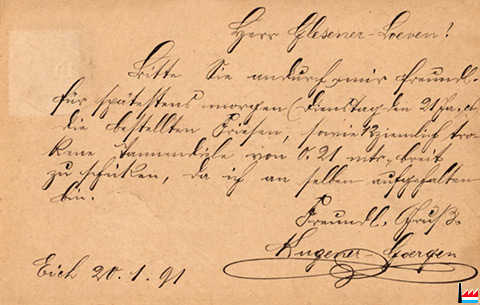 Herr Glesener-Loeven!
Bitte Sie andurch mir freundl.
für spätestens morgen (Dienstag den 21
die bestellten Friesen, sowie ziemlich tro-
kene Tannendiele von 0.21 mtr. breit
zu schicken, da ich an selben aufgehalten
bin.
Freundl. Gruß.
Kugener-Goergen
Eich 20.1.91